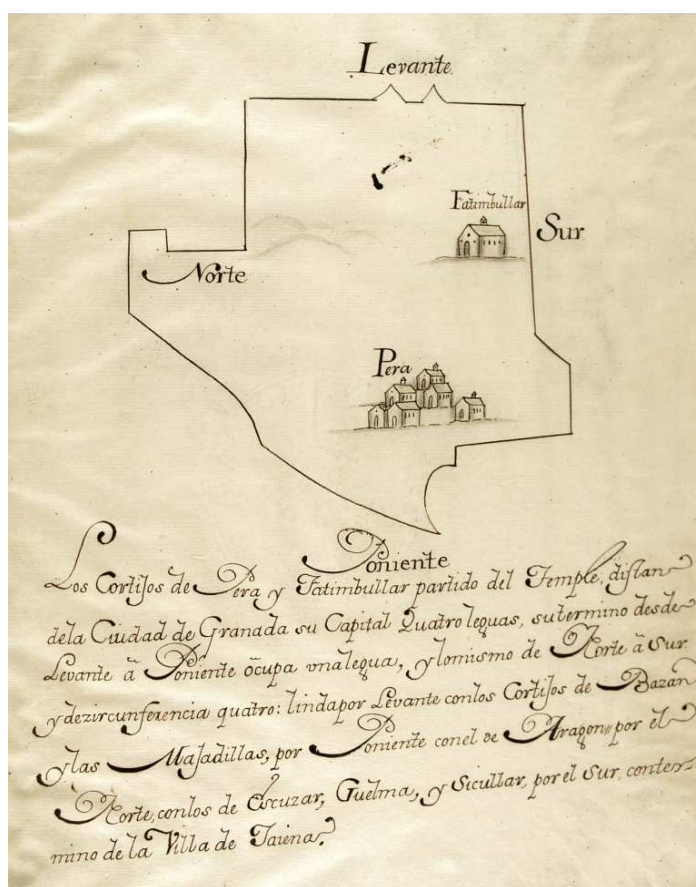 Levante
Fatimbullar
Sur
Norte
Pera
Poniente
Los Cortijos de Pera y Fatimbullar partido del Temple, distan
dela Ciudad de Granada su Capital Quatro leguas, sutermino desde
Levante â Poniente ôcupa vnalegua, y lomismo de Norte â Sur
y dezircunferencia quatro: lindapor Levante conlos Cortijos de Bazan
y las Majadillas, por Poniente conel de Aragon, por el
Norte, conlos de Escuzar, Guelma, y Sicullar, por el Sur, conter-
mino de la Villa de Taiena.